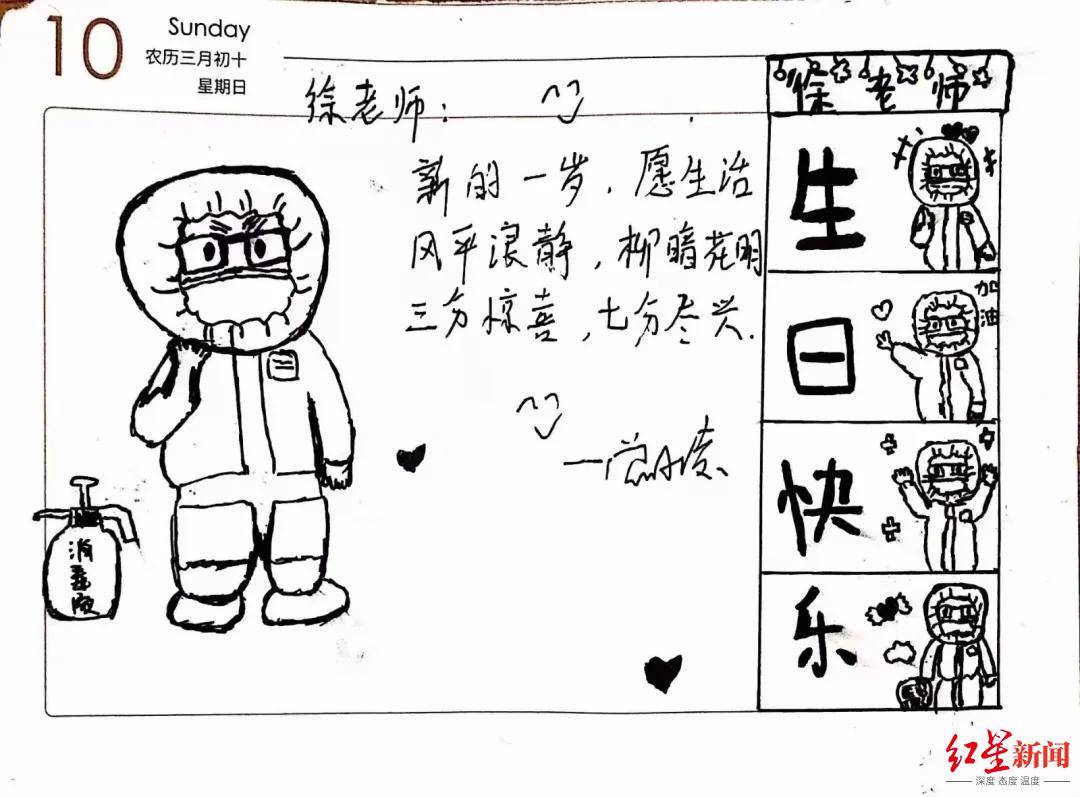 10
Sunday
农历三月初十
星期日
徐老师:
新的一岁,愿生活
风平浪静,柳暗花明
三分惊喜,七分尽兴.
消毒液
徐老师
生
日
加油
快
乐
红星新闻
深度 态度 温度